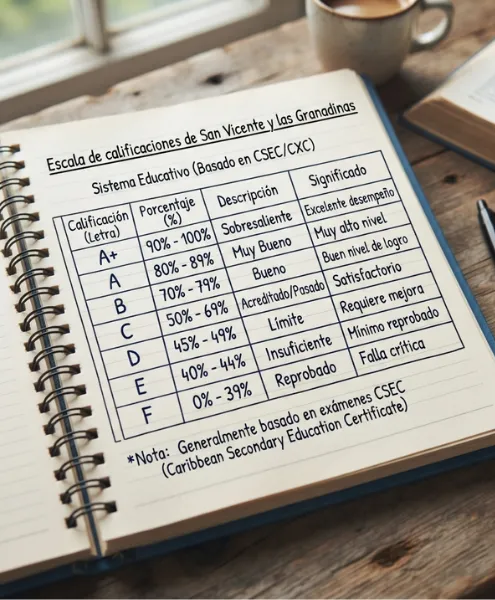 Escala de calificaciones de San Vicente y las Granadinas
Sistema Educativo (Basado en CSEC/CXC)
Calificación (Letra) Porcentaje (%) Descripción Significado
A+ 90% - 100% Sobresaliente Excelente desempeño
A 80% - 89% Muy Bueno Muy alto nivel
B 70% - 79% Bueno Buen nivel de logro
C 50% - 69% Acreditado/Pasado Satisfactorio
D 45% - 49% Límite Requiere mejora
E 40% - 44% Insuficiente Mínimo reprobado
F 0% - 39% Reprobado Falla crítica
*Nota: Generalmente basado en exámenes CSEC
(Caribbean Secondary Education Certificate)